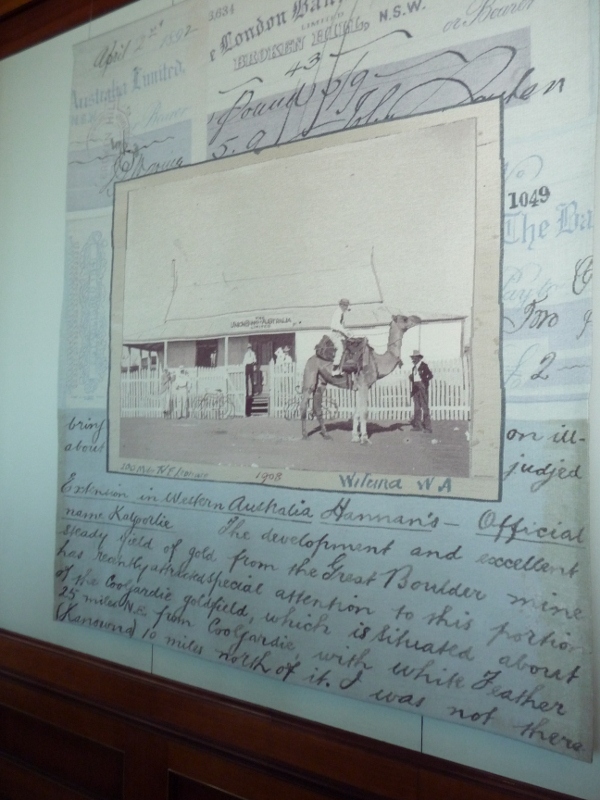 5,634
April 2nd 1892
e London Ban
LIMITED
N.S.W.
BROKEN HILL,
or Bearer
Australia Limited,
43
Pounds 5/9
5. 9
John
No
1049
The Ba
Pay to
Two
£2
THE
LONDON BANK OF AUSTRALIA
LIMITED
1908
Wiluna W A
bring
about
on ill-
judged
Extension in Western Australia Hannan's - Official
name Kalgoorlie The development and excellent
steady yield of gold from the Great Boulder mine
has recently attracted special attention to this portion
of the Coolgardie goldfield, which is situated about
25 miles N.E. from Coolgardie, with White Feather
(Kanowna) 10 miles north of it. I was not there